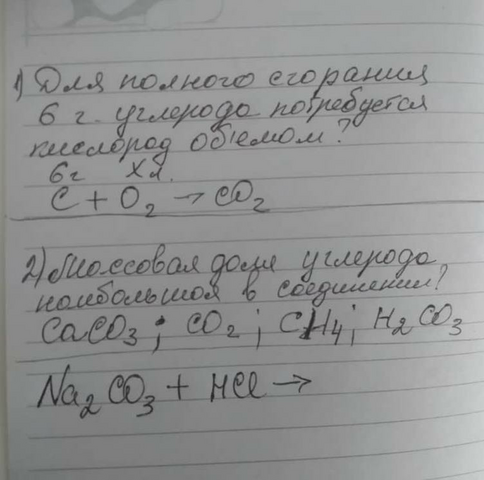 1) Для полного сгорания
6 г углерода потребуется
кислород объемом?
6г Xл.
C + O2 → CO2
2) Массовая доля углерода
наибольшая в соединении?
CaCO3; CO2; CH4; H2CO3
Na2CO3 + HCl →